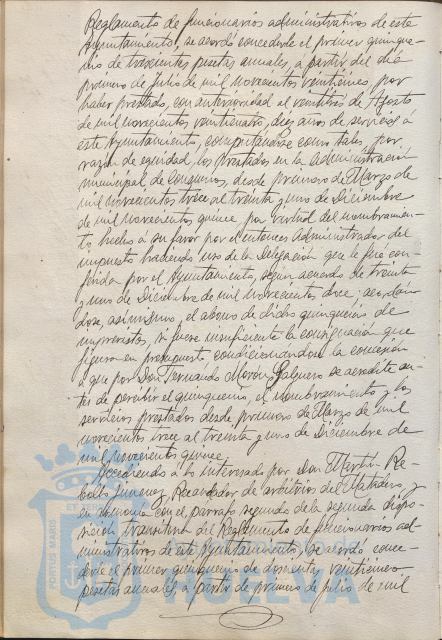 Reglamento de funcionarios administrativos de este
Ayuntamiento, se acordó concederle el primer quinque-
nio de trescientas pesetas anuales, a partir del dia
primero de Julio de mil novecientos veinticinco, por
haber prestado, con anterioridad al veintitres de Agosto
de mil novecientos veinticuatro, diez años de servicios á
este Ayuntamiento, computandose como tales, por
razon de equidad, los prestados en la administración
municipal de Consumos, desde primero de Marzo de
mil novecientos trece al treinta y uno de Diciembre
de mil novecientos quince por virtud del nombramien-
to hecho á su favor por el entonces Administrador del
impuesto haciendo uso de la Delegación que le fué con-
ferida por el Ayuntamiento, según acuerdo de treinta
y uno de Diciembre de mil novecientos doce; acordan-
dose, asimismo, el abono de dicho quinquenio de
imprevistos, si fuese insuficiente la consignación que
figura en presupuesto condicionandose la concesión
a que por Don Fernando Morón Salguero se acredite an-
tes de percibir el quinquenio, el nombramiento y los
servicios prestados desde primero de Marzo de mil
novecientos trece al treinta y uno de Diciembre de
mil novecientos quince.
Accediendo á lo interesado por Don Martin Re-
bollo Jimenez, Recaudador de arbitrios del Matadero, y
en armonía con el parrafo segundo de la segunda dispo-
sición transitoria del Reglamento de funcionarios ad-
ministrativos de este Ayuntamiento, se acordó conce-
derle el primer quinquenio de doscientas veinticinco
pesetas anuales, a partir de primero de Julio de mil
PORTUS MARIS
HUELVA